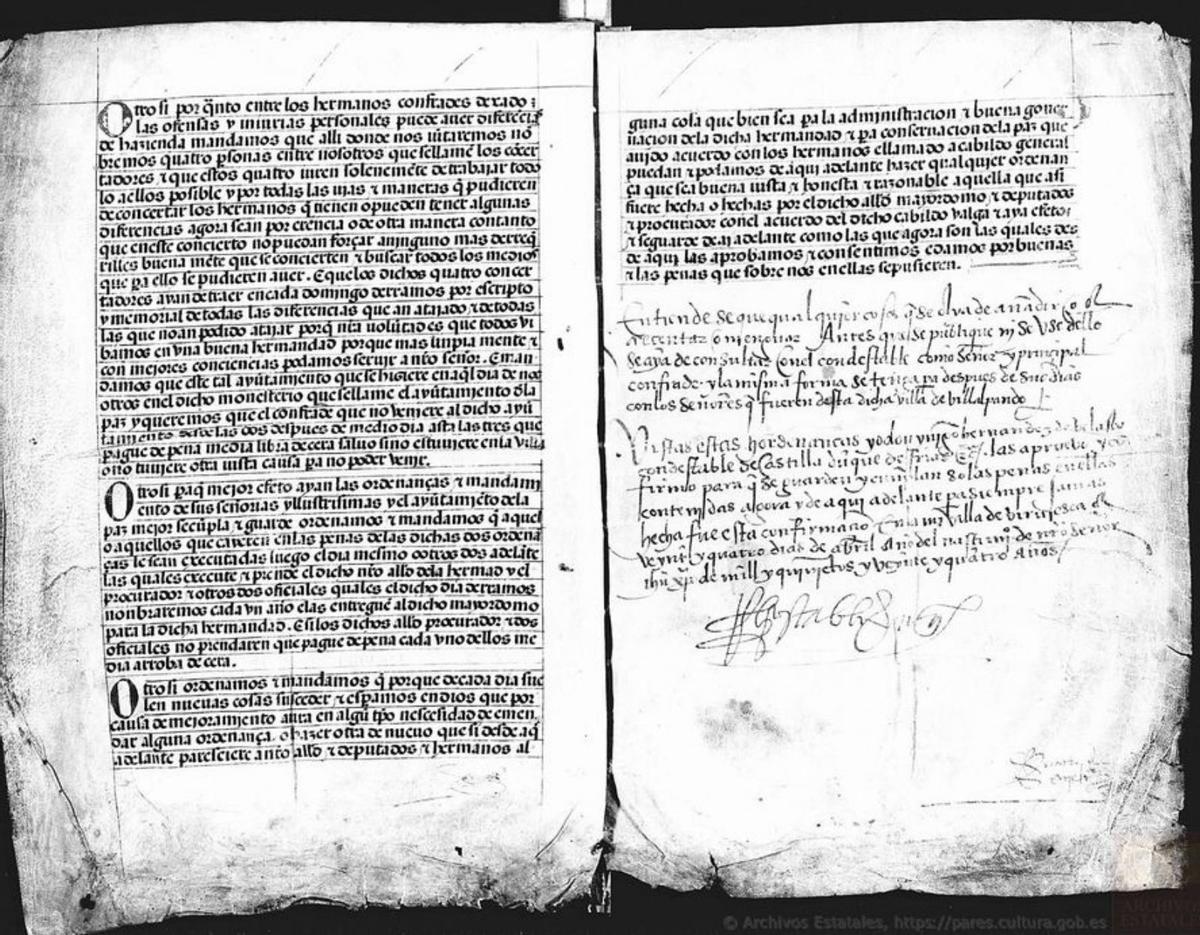 Otro si por q̃nto entre los hermanos confrades dexado:
las ofensas y iniurias personales puede auer diferẽcia
de hazienda mandamos que alli donde nos iũtaremos nõ
bremos quatro p̃sonas entre nosotros que se llamẽ los cõcer
tadores ⁊ que estos quatro iuren solenemẽte de trabajar todo
lo a ellos posible y por todas las uias ⁊ maneras q̃ pudieren
de concertar los hermanos q̃ tienen o pueden tener algunas
diferencias agora sean por erencia o de otra manera con tanto
que en este concierto no puedan forçar a ninguno mas de req̃
rilles buena mẽte que se concierten ⁊ buscar todos los medios
que para ello se pudieren auer. E que los dichos quatro concer
tadores ayan de traer en cada domingo de ramos por escripto
y memorial de todas las diferencias que an atajado ⁊ de todas
las que no an podido atajar porq̃ nr̃a volũtad es que todos vi
bamos en vna buena hermandad porque mas linpia mente ⁊
con mejores conciencias podamos seruir a nr̃o señor. E man
damos que este tal ayũtamiento que se hiziere en aq̃l dia de nos
otros en el dicho monesterio que se llame el ayũtamiento d̃la
paz y queremos que el confrade que no veniere al dicho ayũ
tamiento desde las dos despues de medio dia asta las tres que
pague de pena media libra de cera saluo sino estuuiere en la villa
o no tuuiere otra iusta causa p̃a no poder venir.
Otro si p̃a q̃ mejor efeto ayan las ordenanças ⁊ mandami
ento de sus señorias yllustrisimas y el ayũtamiẽto de la
paz mejor se cũpla ⁊ guarde ordenamos ⁊ mandamos q̃ aquel
o aquellos que cayeren en las penas de las dichas dos ordenã
ças le sean executadas luego el dia mesmo o otros dos adelãte
las quales execute ⁊ prende el dicho nr̃o allđ de la hermađ y el
procurador ⁊ otros dos oficiales quales el dicho dia de ramos
nonbraremos cada vn año e las entreguẽ al dicho mayordomo
para la dicha hermandad. E si los dichos allđ procurador ⁊ dos
oficiales no prendaren que pague de pena cada vno dellos me
dia arroba de cera.
Otro si ordenamos ⁊ mandamos q̃ porque de cada dia sue
len nueuas cosas susceder ⁊ esp̃amos en dios que por
causa de mejoramiento aura en algũ tp̃o nescesidad de emen
dar alguna ordenança. o hazer otra de nueuo que si desde aq̃
adelante paresciere a nr̃o allđ ⁊ deputados ⁊ hermanos al
guna cosa que bien sea p̃a la administracion ⁊ buena gouer
nacion de la dicha hermandad ⁊ p̃a conseruacion de la paz que
auido acuerdo con los hermanos e llamado a cabildo general
puedan ⁊ podamos de aqui adelante hazer qualquier ordenan
ça que sea buena iusta ⁊ honesta ⁊ razonable aquella que asi
fuere hecha o hechas por el dicho allđ mayordomo ⁊ deputados
⁊ procurador con el acuerdo del dicho cabildo valga ⁊ aya efeto:
⁊ se guarde de ai adelante como las que agora son las quales des
de aqui las aprobamos ⁊ consentimos e damos por buenas
⁊ las penas que sobre nos en ellas se pusieren.
Entiende se que qualquier cosa q̃ se elva de añadir o
acrentar o menguar Antes que se publique ni se vse dello
se aya de consultar con el condestable como señor y principal
confrade y la misma forma se tenga pa despues de sus dias
con los señores q̃ fueren desta dicha villa de villalpando
Vistas estas hordenanças yo don ynigo hernandez de belasco
condestable de castilla duque de frias Etc. las aprueuo y cō
firmo para q̃ se guarden y cunplan so las penas en ellas
contenidas agora y de aqui adelante pa sienpre jamas
hecha fue esta confirmacio En la mi villa de virviesca a
veynt y quatro dias de abril Año del nascimi° de nr̃o señor
ihũ xp̃o de mill y quinietos y veynte y quatro Años
© Archivos Estatales, https://pares.cultura.gob.es
ARCHIVOS
ESTATALES